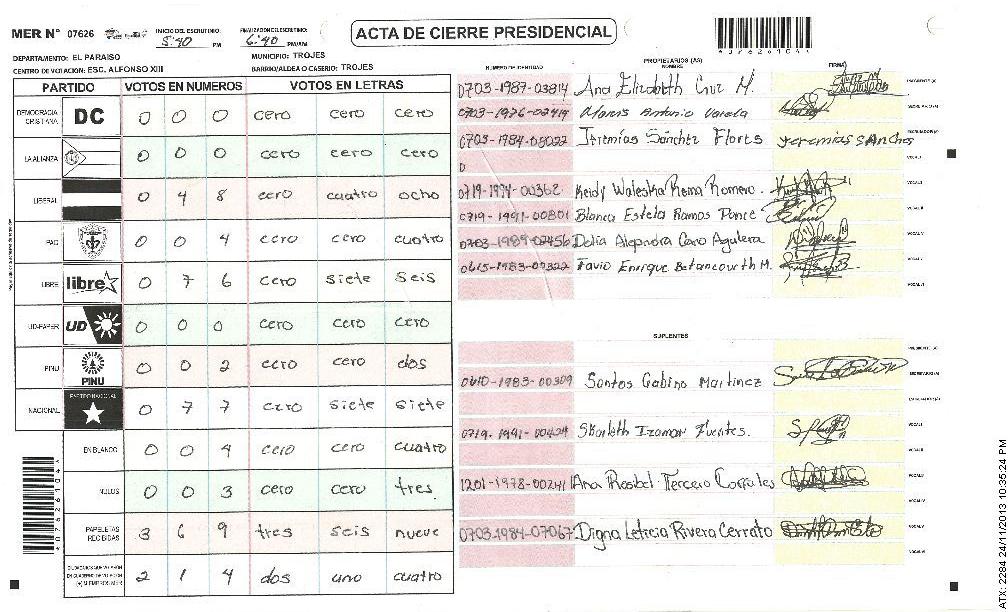 MER N° 07626 INICIO DEL ESCRUTINIO: 5:40 PM FINALIZACION ESCRUTINIO: 6:40 PM/AM
ACTA DE CIERRE PRESIDENCIAL
DEPARTAMENTO: EL PARAISO MUNICIPIO: TROJES
CENTRO DE VOTACION: ESC. ALFONSO XIII BARRIO/ALDEA O CASERIO: TROJES
PARTIDO VOTOS EN NUMEROS VOTOS EN LETRAS
DEMOCRACIA CRISTIANA DC 0 0 0 cero cero cero
LA ALIANZA 0 0 0 cero cero cero
LIBERAL 0 4 8 cero cuatro ocho
PAC 0 0 4 cero cero cuatro
LIBRE libre 0 7 6 cero siete seis
UD-FAPER UD 0 0 0 cero cero cero
PINU PINU 0 0 2 cero cero dos
NACIONAL PARTIDO NACIONAL 0 7 7 cero siete siete
EN BLANCO 0 0 4 cero cero cuatro
NULOS 0 0 3 cero cero tres
PAPELETAS RECIBIDAS 3 6 9 tres seis nueve
CIUDADANOS QUE VOTARON 2 1 4 dos uno cuatro
NUMERO DE IDENTIDAD PROPIETARIOS (AS) NOMBRE FIRMA
0703-1987-03814 Ana Elizabeth Cruz M.
0703-1976-02419 Antonio
0703-1984-05022 Jeremías Sánchez Flores Jeremias Sanches
0
0719-1994-00362 Keidy Waleska Rema Romero
0719-1991-00801 Blanca Estela Ramos Ponce
0703-1989-02456 Delia Alejandra Cano Aguilera
0615-1983-00322 Favio Enrique Betancourth M.
SUPLENTES
0610-1983-00309 Santos Gabino Martinez
0719-1991-00424 Skarleth Izamar Fuentes.
1201-1978-00241 Ana Rosibel Tercero Corrales
0703-1984-07067 Digna Leticia Rivera Cerrato
ATX: 2284 24/11/2013 10:35:24 PM